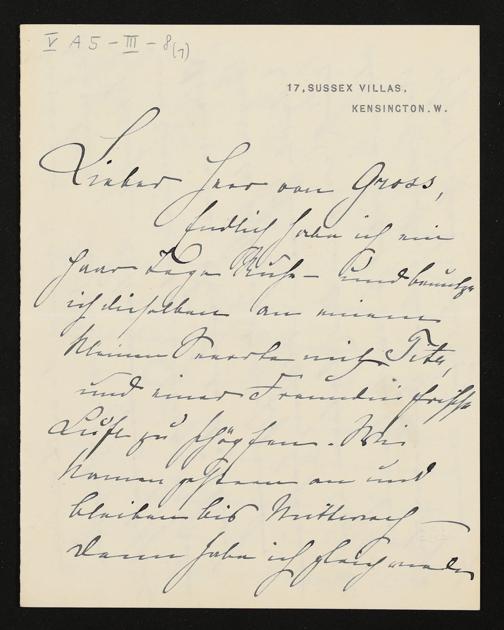 V A 5 - III - 8(7)
17, SUSSEX VILLAS,
KENSINGTON. W.
Lieber Herr von Gross,
Endlich habe ich ein
paar Tage Ruhe – und benutze
ich dieselben an einem
kleinen Seeorte mit
und einer Freundin frische
Luft zu schöpfen. Wir
kamen gestern an und
bleiben bis Mittwoch –
dann habe ich gleich wieder